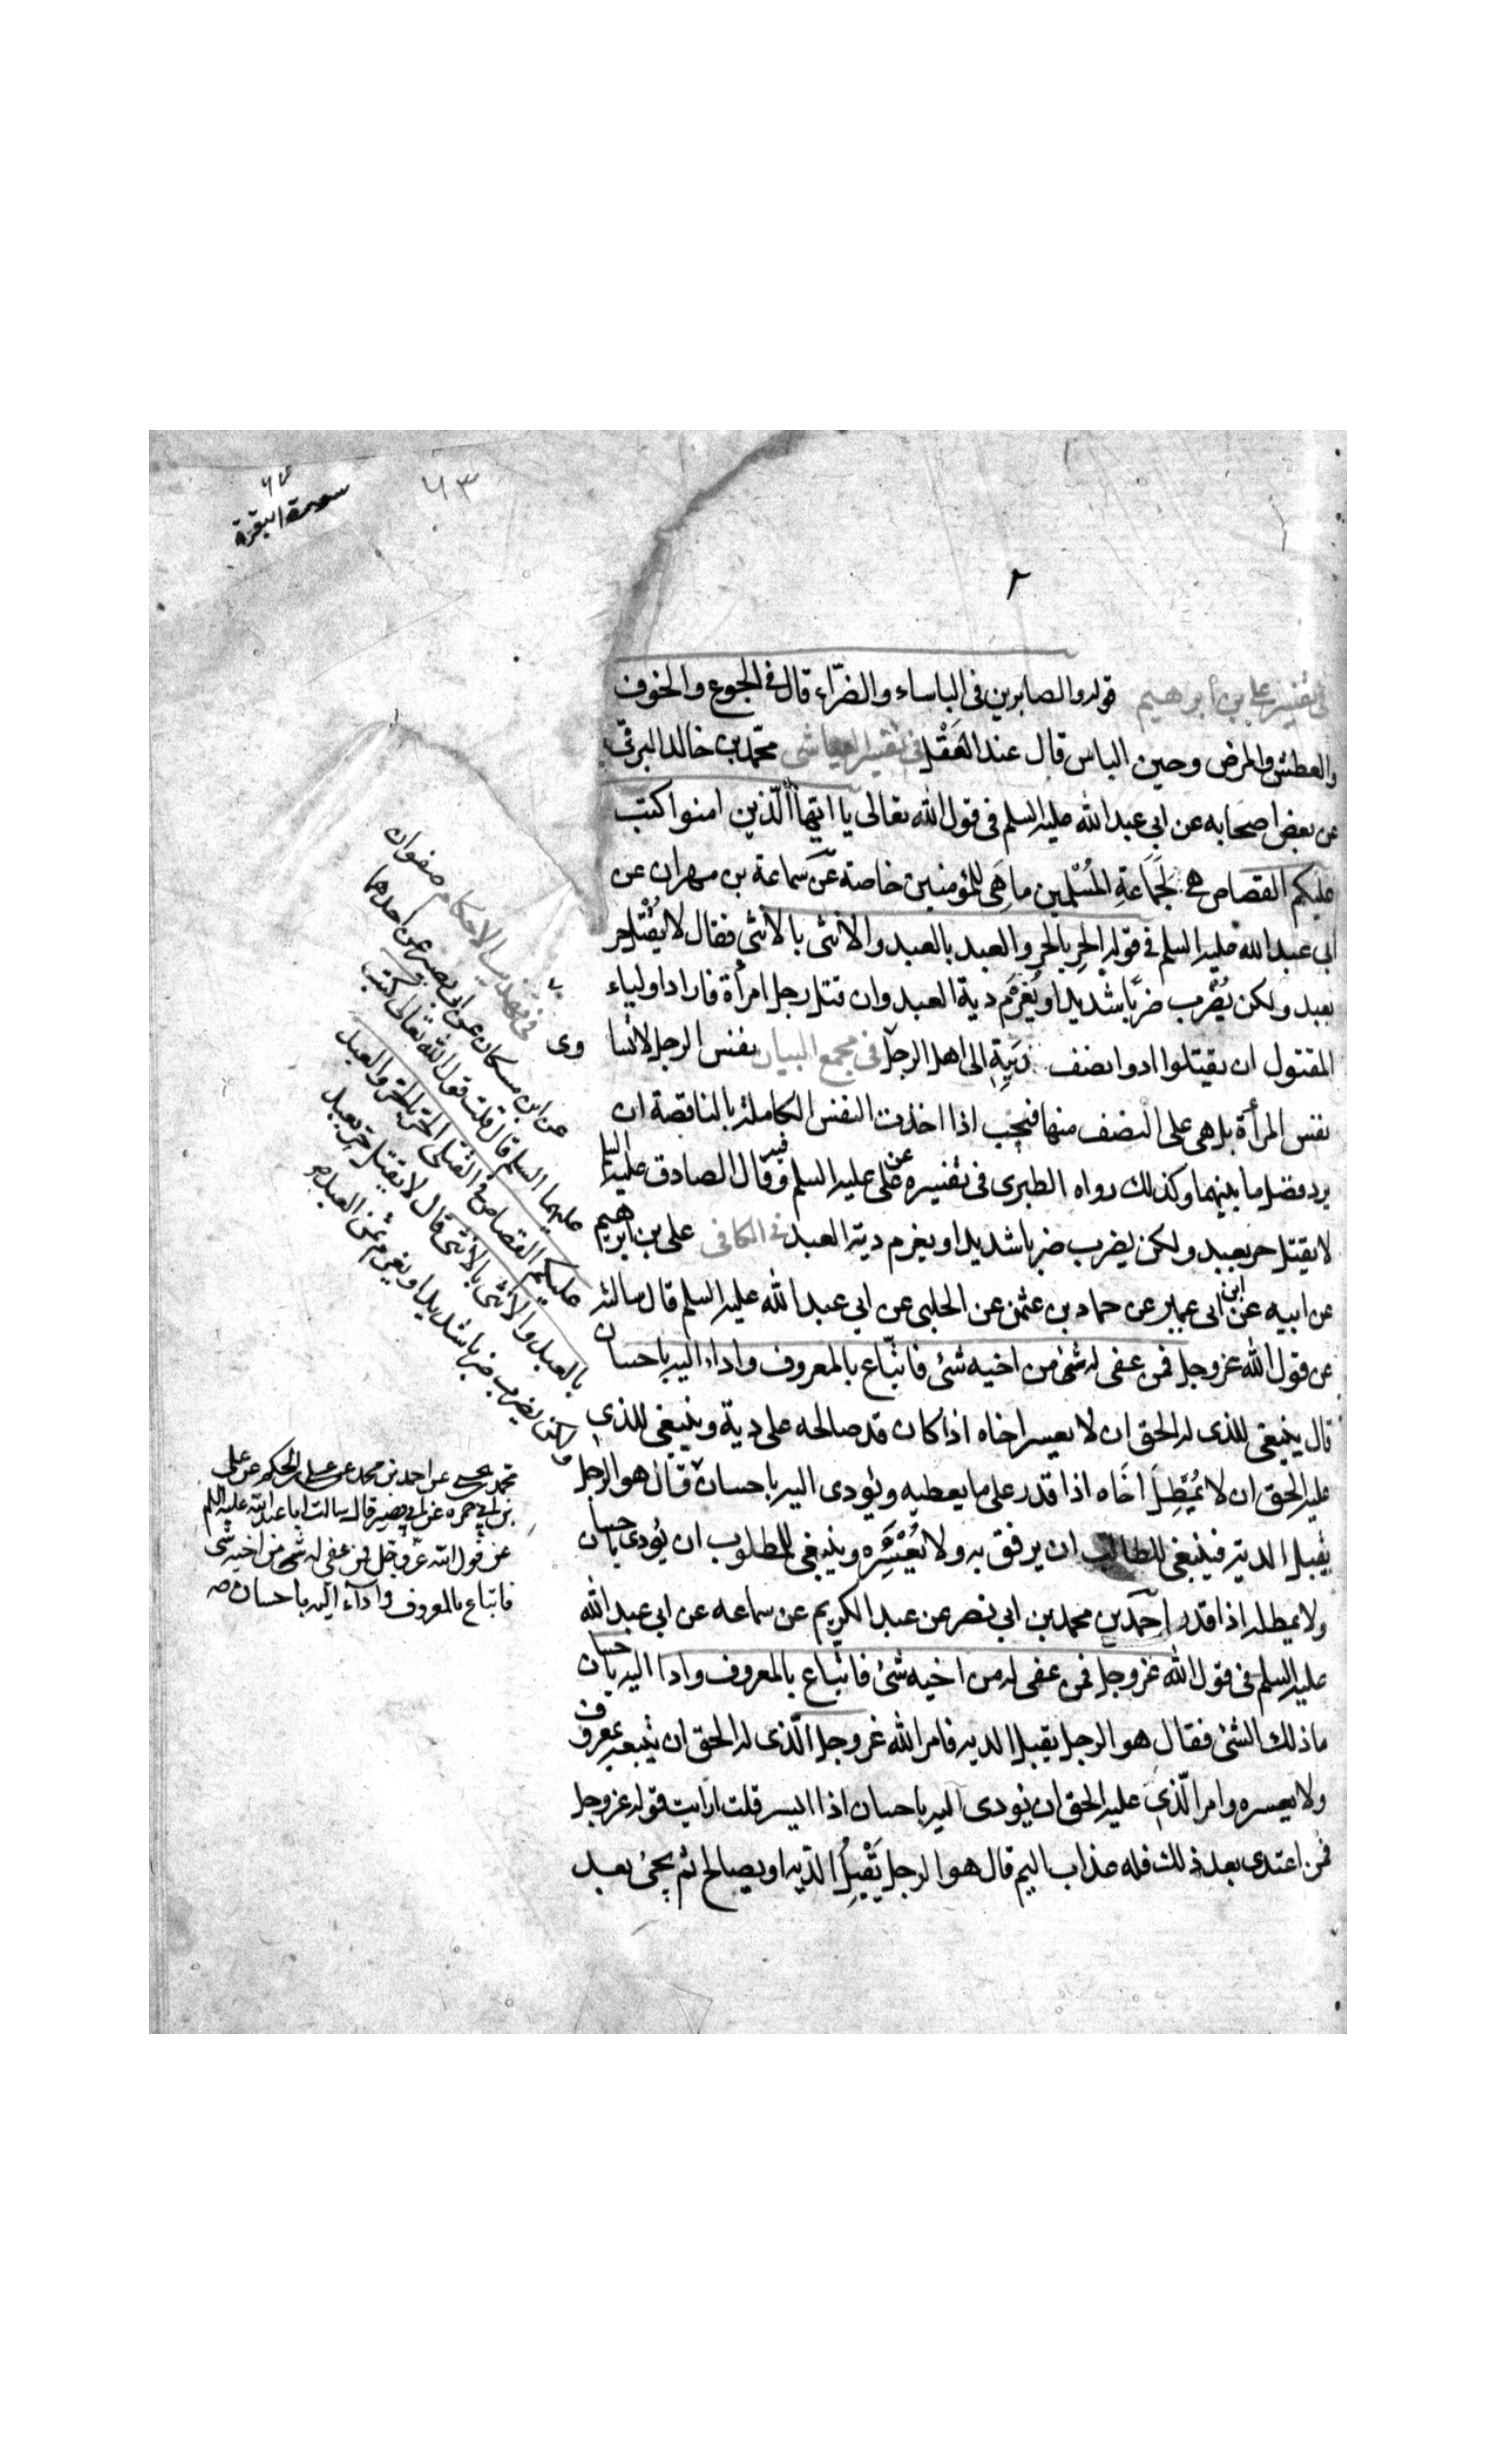 ٦٣
سورة البقرة
٢
في تفسير علي بن أبراهيم قوله والصابرين فى الباساء والضرّاء قال فى الجوع والخوف
والعطش والمرض وحين الباس قال عند القتل في تفسير العياشى محمّد بن خالد البرقى
عن بعض اصحابه عن ابي عبد الله عليه السلم فى قول الله تعالى يا ايّها الّذين امنوا كتب
عليكم القصاص هى لجماعة المُسْلمين ما هى للمؤمنين خاصة عن سماعة بن مهران عن
ابى عبد الله عليه السلم فى قوله الحر بالحر والعبد بالعبد والانثى بالانثى فقال لا يُقْتل حر
بعبد ولكن يُضْرب ضربا شديدا ويُغرم دية العبد وان قتل رجل امرأة فاراد اولياء
المقتول ان يقتلوا ادوا نصف ديته الى اهل الرجل فى مجمع البيان نفس الرجل لاتسا
نفس المرأة بل هى على النصف منها فيجب اذا اخذت النفس الكاملة بالناقصة ان
يرد فضل ما بينهما وكذلك رواه الطبرى فى تفسيره عن على عليه السلم وفيه وقال الصادق عليه السلم
لا يقتل حر بعبد ولكن يضرب ضربا شديدا ويغرم دية العبد فى الكافى على بن ابرهيم
عن ابيه عن ابن ابى عمير عن حماد بن عثمن عن الحلبى عن ابي عبد الله عليه السلم قال سالته
عن قول الله عز وجل فمن عفى له شئ من اخيه شئ فاتّباع بالمعروف واداء اليه باحسان
قال ينبغى للذى له الحق ان لا يعسر اخاه اذا كان قد صالحه على دية وينبغى للذي
عليه الحق ان لا يُمطِلَ اخَاه اذا قدر على ما يعطيه ويؤدى اليه باحسان وقال هو الرجل
يقبل الدية فينبغى للطالب ان يرفق به ولا يُعْسِرَه وينبغى للمطلوب ان يؤدى باحسان
ولا يمطله اذا قدر احمد بن محمد بن ابي نصر عن عبد الكريم عن سماعه عن ابى عبد الله
عليه السلم فى قول الله عز وجل فمن عفى له من اخيه شئ فاتّباع بالمعروف وادا اليه باحسان
ما ذلك الشئ فقال هو الرجل يقبل الديه فامر الله عز وجل الّذى له الحق ان يتبعه بمعروف
ولا يعسره وامر الّذي عليه الحق ان يؤدى اليه باحسان اذا ايسر قلت ارايت قوله عز وجل
فمن اعتدى بعد ذلك فله عذاب اليم قال هو الرجل يَقْبلُ الدّيه او يصالح ثم يجئ بعد
وى فى تهذيب الاحكام صفوان
عن ابن مسكان عن ابى بصير عن احدهما
عليهما السلم قال قلت قول الله تعالى كتب
عليكم القصاص فى القتلى الحر بالحر والعبد
بالعبد والانثى بالانثى قال لا يقتل حر بعبد
ولكن يضرب ضربا شديدا ويغرم ثمن العبد
محمد بن يحيى عن احمد بن محمد عن على بن الحكم عن على
بن ابي حمزه عن ابي بصير قال سالت ابا عبد الله عليه السلم
عن قول الله عزّ وجل فمن عفى له شئ من اخيه شئ
فاتباع بالمعروف وادآء اليه باحسان